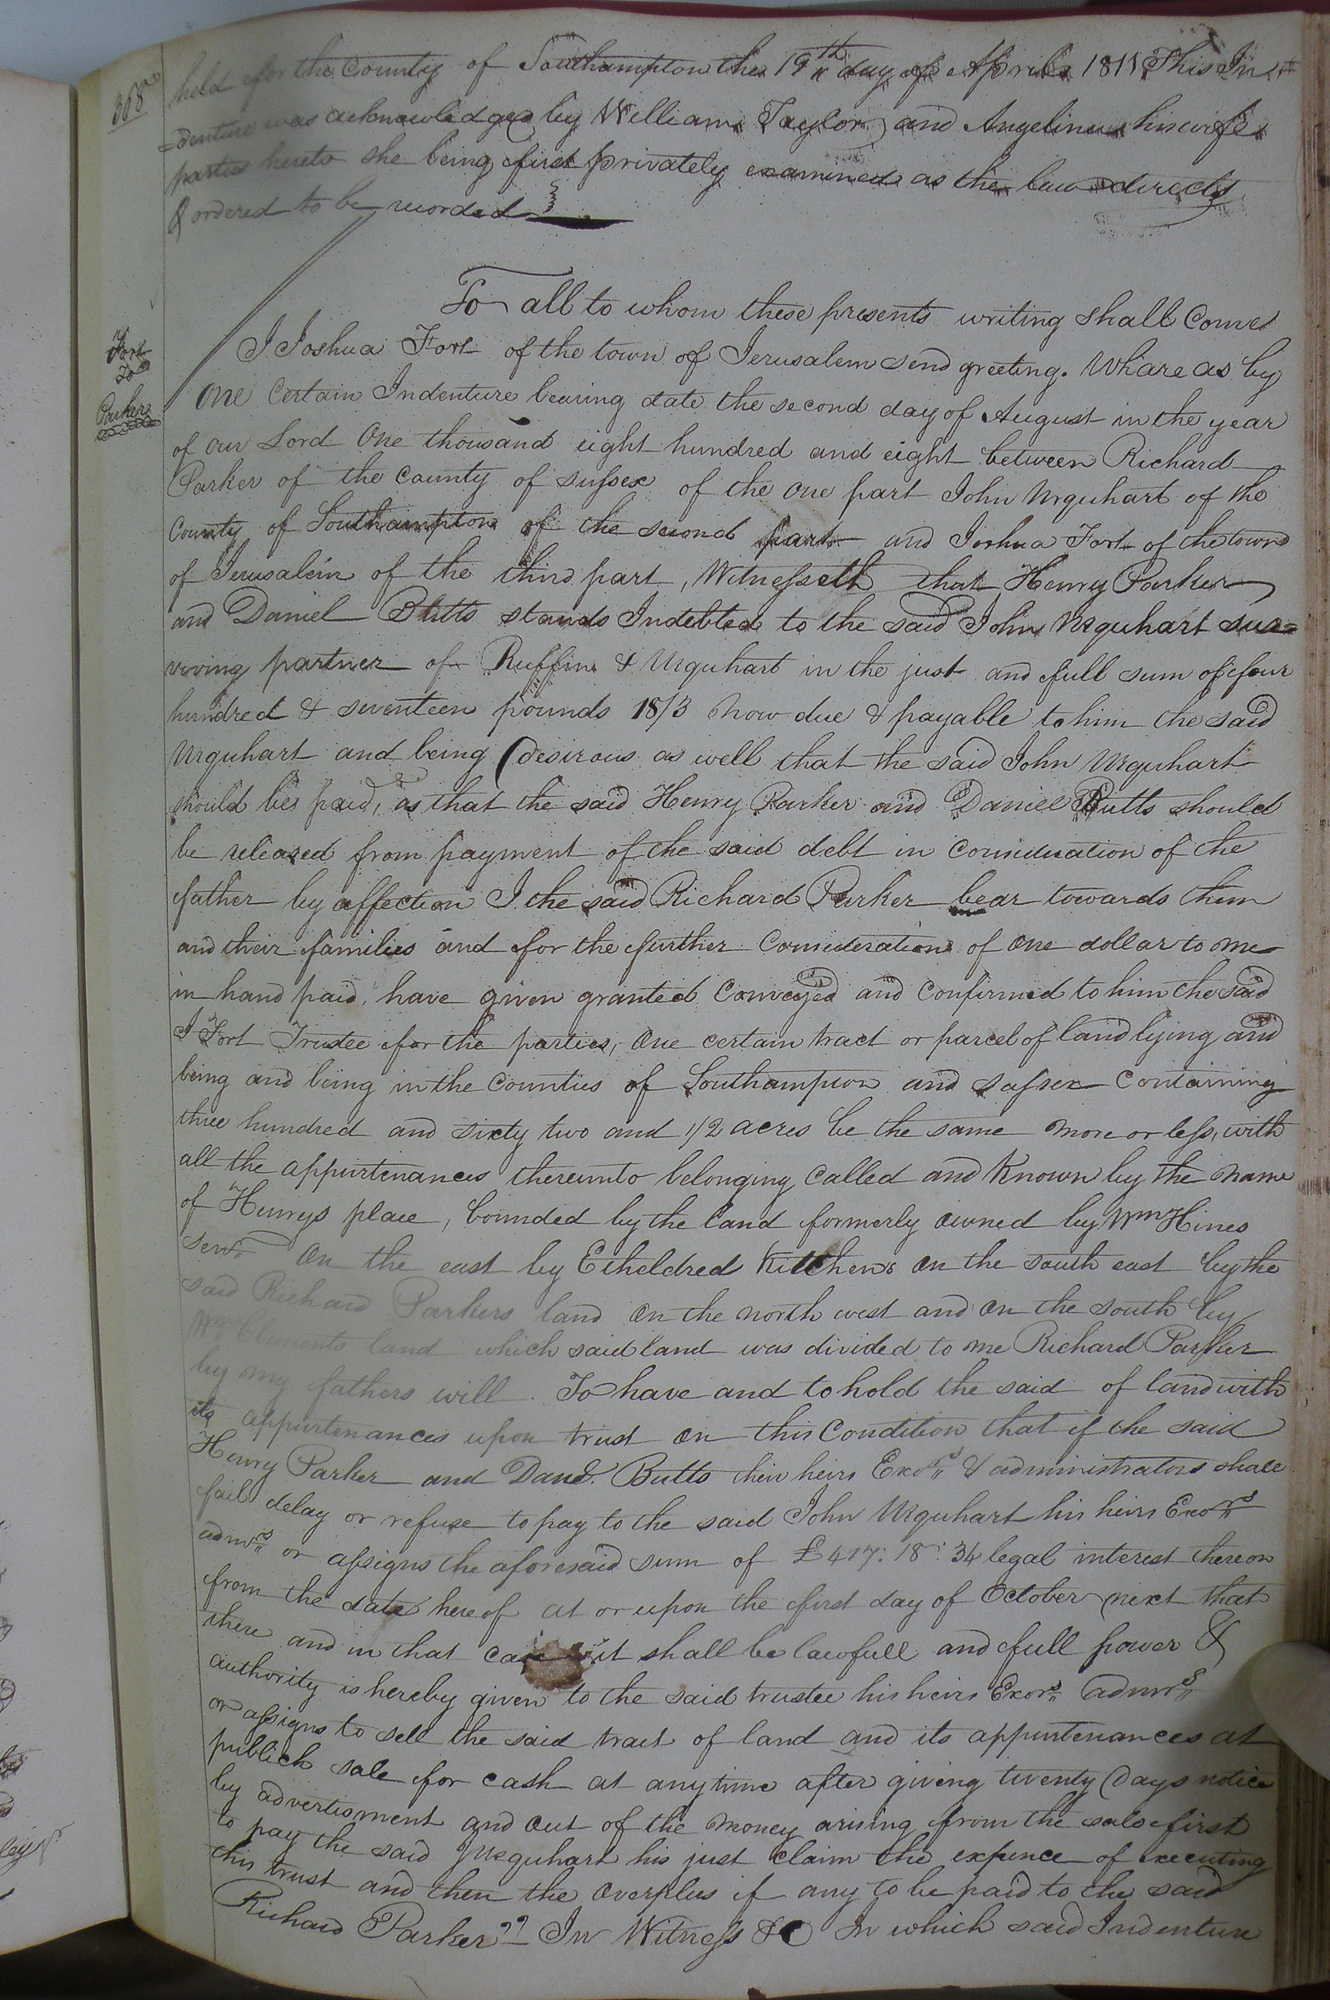 368
held for the County of Southampton the 19th day of April 1811 This In-
=denture was acknowledged by William Taylor and Angelina his wife
parties hereto she being first privately examined as the law directs
& ordered to be recorded
Fort
To
Parker
To all to whom these presents writing shall Come
I Joshua Fort of the town of Jerusalem send greeting. Whare as by
One Certain Indenture bearing date the second day of August in the year
of our Lord One thousand eight hundred and eight between Richard
Parker of the County of sussex of the one part John Urquhart of the
County of Southampton of the second part and Joshua Fort of the town
of Jerusalem of the third part, Witnesseth that Henry Parker
and Daniel Butts stands Indebted to the said John Urquhart sur=
viving partner of Ruffin & Urquhart in the just and full sum of four
hundred & seventeen pounds 18/3 Now due & payable to him the said
Urquhart and being desirous as well that the said John Urquhart
should be paid, as that the said Henry Parker and Daniel Butts should
be released from payment of the said debt in Consideration of the
father by affection I the said Richard Parker bear towards them
and their families and for the further Consideration of One dollar to me
in hand paid, have given granted Conveyed and Confirmed to him the said
J Fort Trustee for the parties, One certain tract or parcel of land lying and
being and being in the Counties of Southampton and sussex Containing
three hundred and sixty two and 1/2 acres be the same More or less, with
all the appurtenances thereunto belonging Called and Known by the Name
of Henrys place, bounded by the land formerly Owned by Wm Hines
senr On the east by Etheldred Kitchens On the south east by the
said Richard Parkers land On the North west and On the South by
Wm Clements land which said land was divided to me Richard Parker
by my fathers will. To have and to hold the said of land with
its appurtenances upon trust On this Condition that if the said
Henry Parker and Danel. Butts their heirs Exors & administrators shall
fail delay or refuse to pay to the said John Urquhart his heirs Exors
admrs or assigns the aforesaid sum of £417: 18: 3 & legal interest thereon
from the date hereof at or upon the first day of October next that
there and in that case it shall be lawfull and full power &
authority is hereby given to the said trustee his heirs Exors admrs
or assigns to sell the said tract of land and its appurtenances at
publick sale for cash at any time after giving twenty days notice
by advertisment and Out of the Money arising from the sale first
to pay the said Urquhart his just Claim the expence of executing
this trust and then the Overplus if any to be paid to the said
Richard Parker In Witness &C In which said Indenture